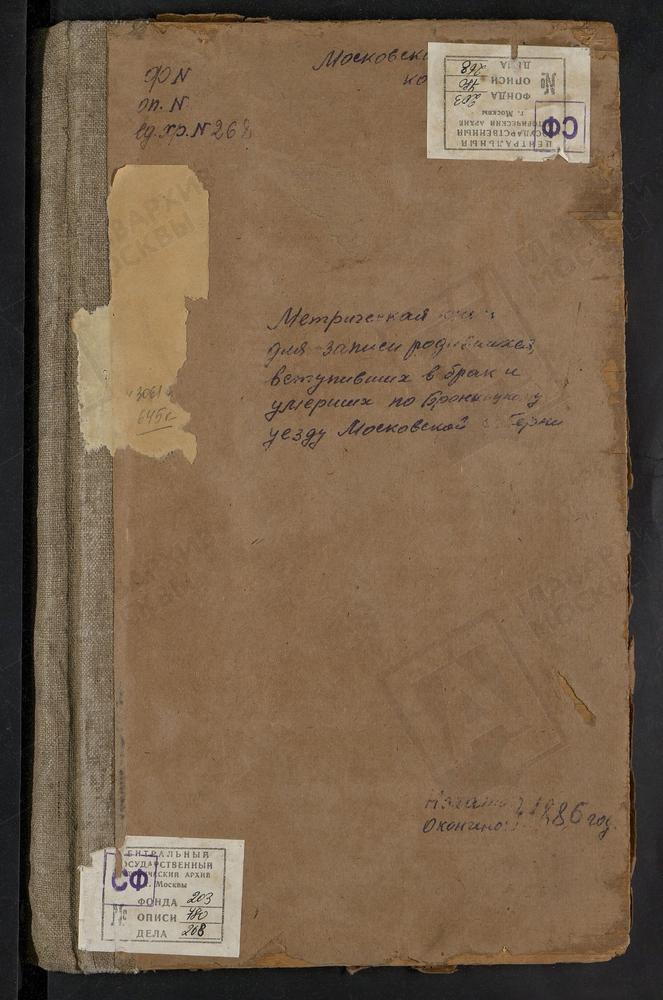 Московск
ко
ф N
оп. N
ед. хр. N 268
ЦЕНТРАЛЬНЫЙ
ГОСУДАРСТВЕННЫЙ
ИСТОРИЧЕСКИЙ АРХИВ
г. Москвы
СФ
№
ФОНДА 203
ОПИСИ 780
ДЕЛА 268
Метрическая
для записи родившихся,
вступивших в брак и
умерших по Бронницкому
уезду Московской губернии
3061
645
Начато
Окончено 1886 год.
ЦЕНТРАЛЬНЫЙ
ГОСУДАРСТВЕННЫЙ
ИСТОРИЧЕСКИЙ АРХИВ
г. Москвы
СФ
№
ФОНДА 203
ОПИСИ 780
ДЕЛА 268
ГЛАВАРХИВ
МОСКВЫ